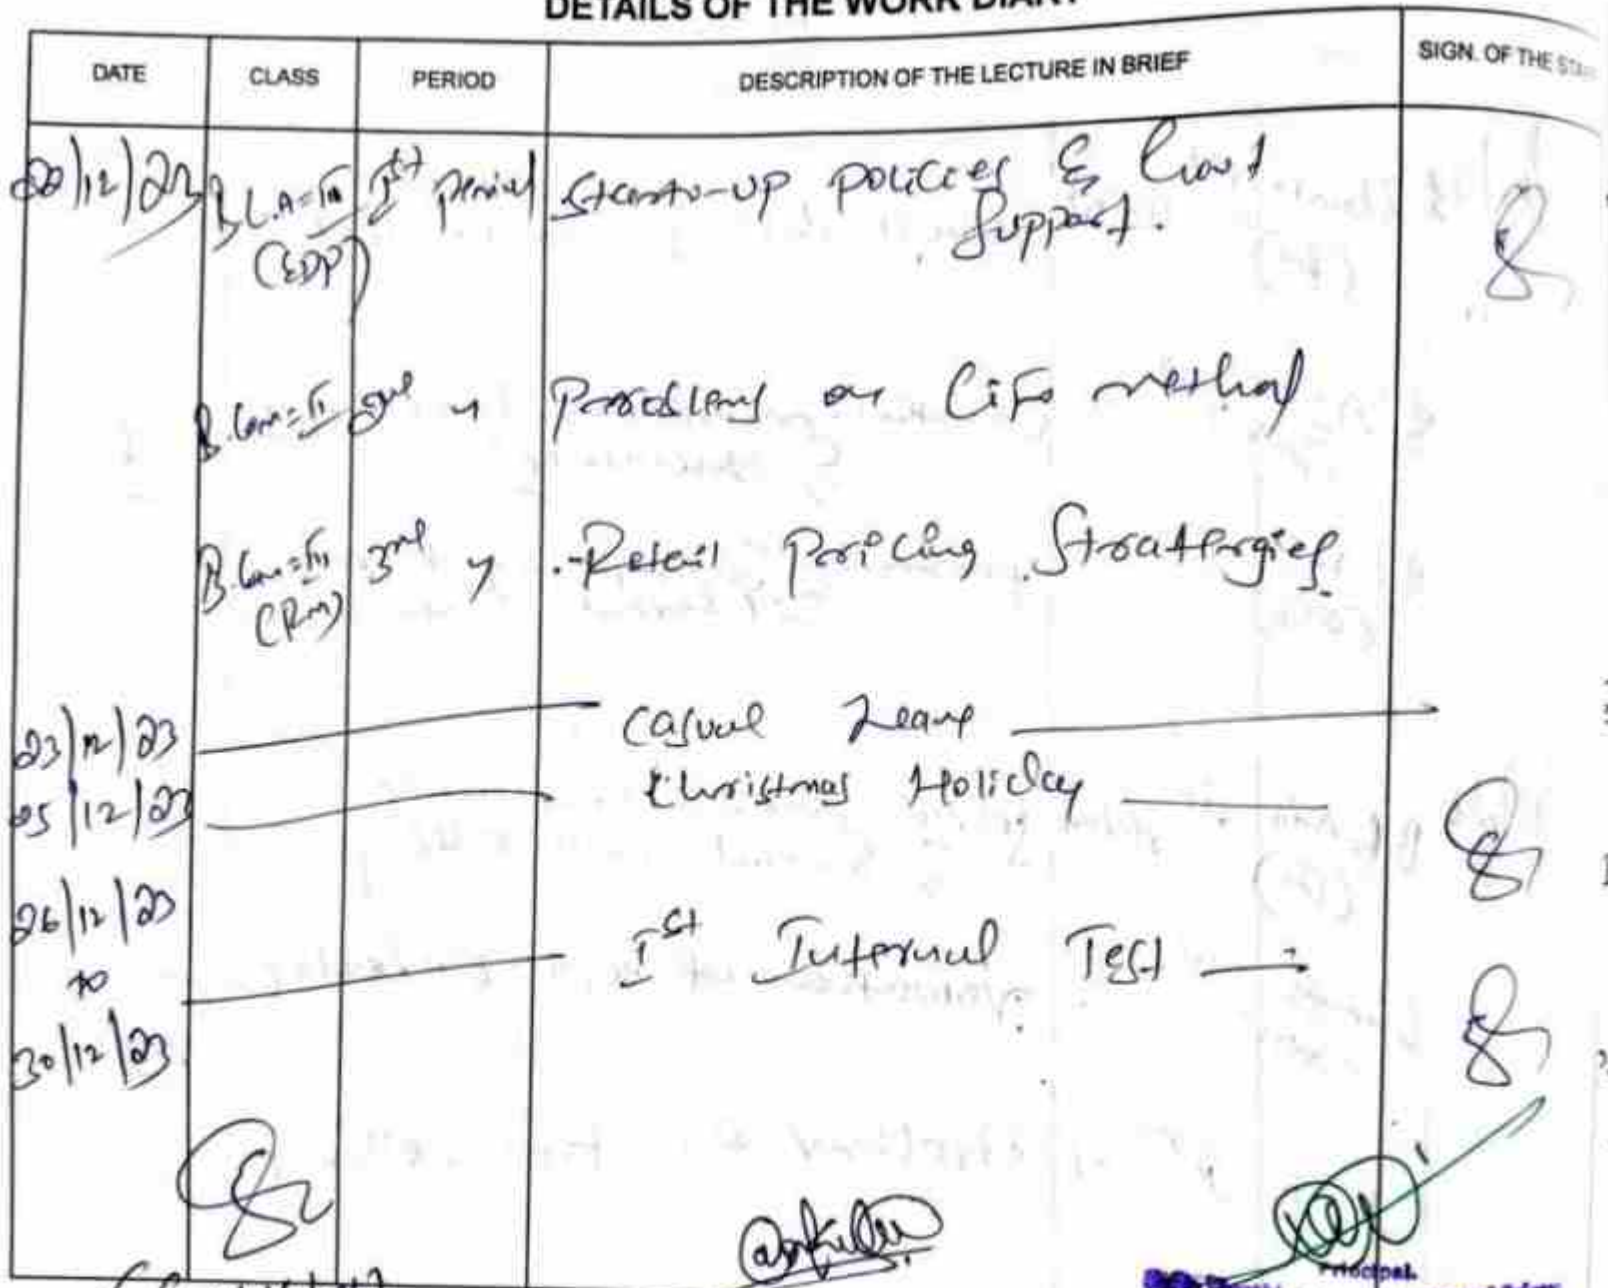 DETAILS OF THE WORK DIARY
DATE CLASS PERIOD DESCRIPTION OF THE LECTURE IN BRIEF SIGN. OF THE
/12/23 Ist period Start-up policies & Govt
(EDP) Support.
B.Com=II 2nd " Problems on LiFo method
B.Com=III 3rd " Retail Pricing Stratergies
(RM)
23/12/23 Casual Leave
25/12/23 Christmas Holiday
26/12/23
to Ist Internal Test
30/12/23
Principal.